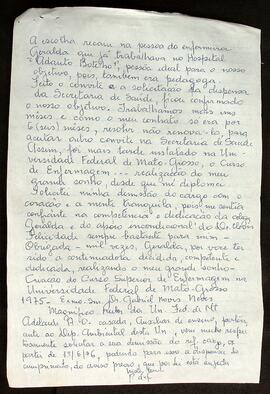 A escolha recaiu na pessoa da enfermeira
Geralda que já trabalhava no Hospital
"Adauto Botelho", pessoa ideal para o nosso
objetivo, pois, também era pedagoga.
Feito o convite e a solicitação da dispensa
da Secretaria de Saúde, ficou confirmado
o nosso objetivo. Trabalhamos mais uns
meses e como o meu contrato so era por
6 (seis) meses, resolvi não renova-lo, para
aceitar outro convite na Secretaria de Saúde
Assim, foi mais tarde instalado na Uni
versidade Federal de Mato-Grosso, o Curso
de Enfermagem... realização do meu
grande sonho, desde que me diplomei
Solicitei minha demissão do cargo com o
coração e a mente tranquila, pois, me sentia
confiante na competência e dedicação da
Geralda e do apoio incondicional do Dr.
Felicidade sempre bastante para mim
Obrigada - mil vezes, Geralda, por você ter
sido a continuadora decidida, competente e
dedicada, realizando o meu grande sonho -
Criação do Curso Superior de Enfermagem na
Universidade Federal de Mato-Grosso
1975 - Exmo. Snr. Dr. Gabriel Novis Neves
Magnífico Reitor da Un. Fed. de MT
casada, Auxiliar de ensino,
ao Dep. Ambiental desta Un, vem mui respei
tosamente solicitar a sua demissão do cargo, a
partir de pedindo para isso a dispensa do
cumprimento, do aviso prévio a que por lei está sujeita